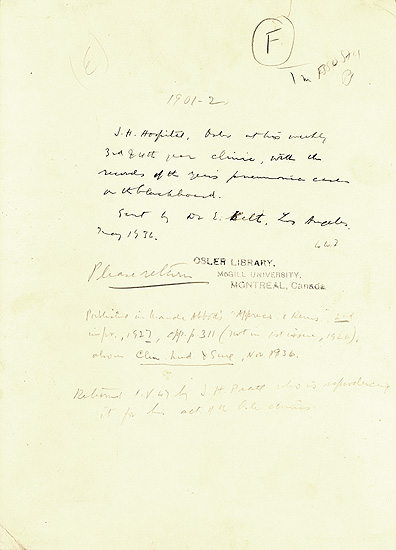 F
1901-2
J.H. Hospital, Osler at his weekly
3rd & 4th year clinic, with the
records of the year's pneumonia cases
on the blackboard.
Sent by Dr E. Kelt, Los Angeles.
May 1936.
Please return
OSLER LIBRARY,
McGILL UNIVERSITY,
MONTREAL, Canada
Published in Maude Abbott's "Appreciations & Reminiscences" 2nd
impr., 1927, opp. p 311 (not in 1st issue, 1926).
, Nov 1936.
Returned by J.H. Pratt who is reproducing
it for his